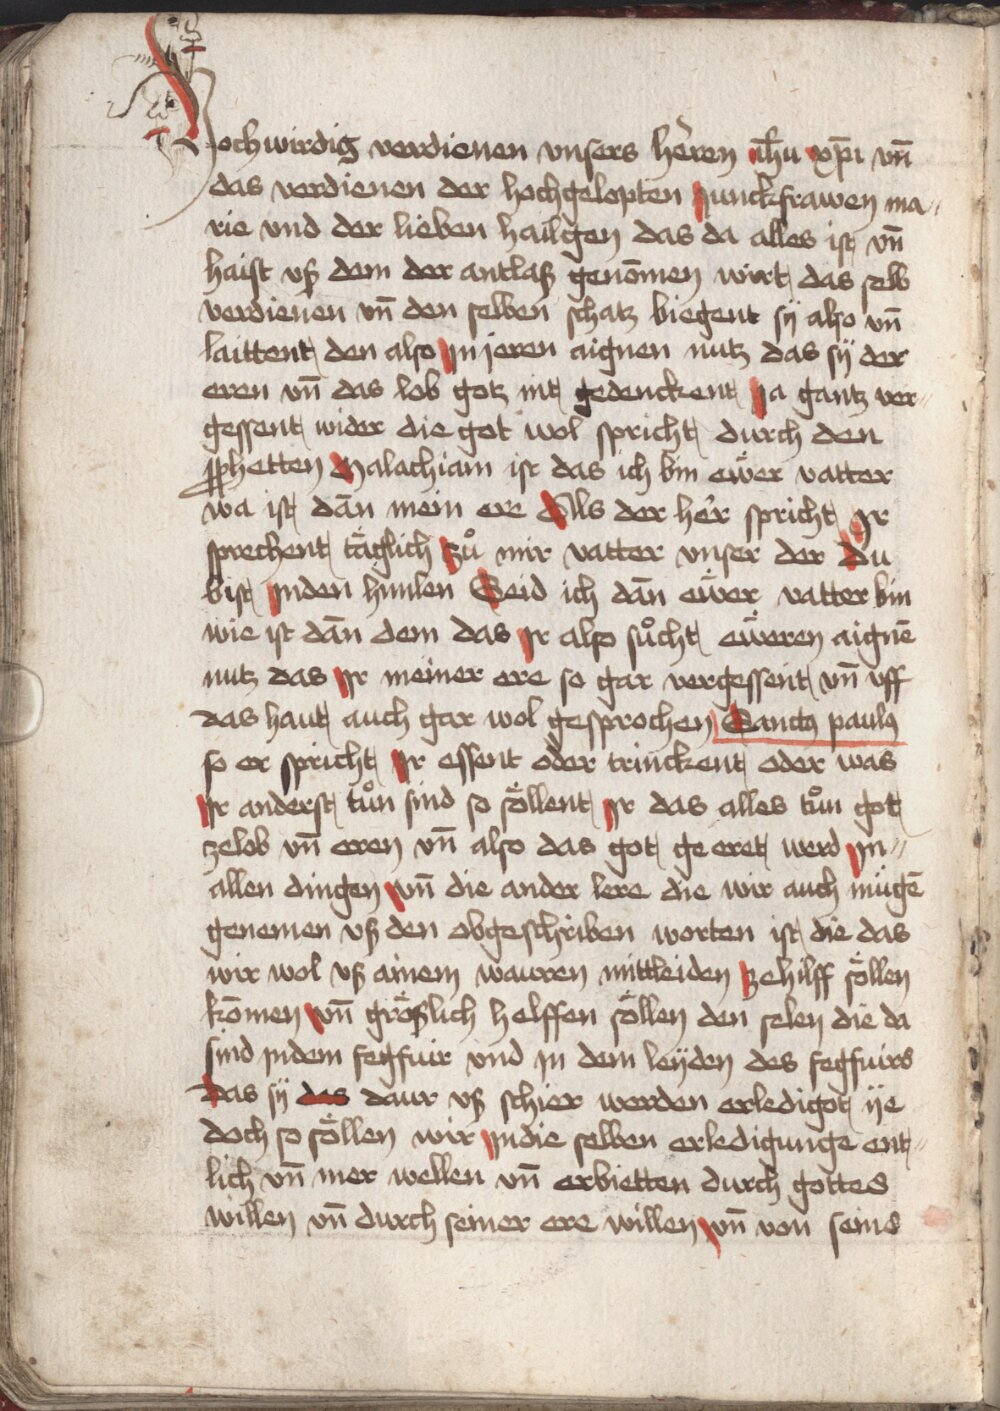 Hochwirdig verdienen vnsers herren ih̄u xp̄i vn̄
das verdienen der hochgelopten junckfrawen ma-
rie vnd der lieben hailgen das da alles ist vn̄
haist vß dem der antlaß genom̄en wirt das selb
verdienen vn̄ den selben schatz biegent sÿ also vn̄
laittent den also in jeren aignen nutz das sÿ der
eren vn̄ das lob gotz nit gedenckent ja gantz ver-
gessent wider die got wol spricht durch den
ꝓphetten Malachiam ist das ich bin eẅer vatter
wa ist dān mein ere Als der her spricht Ir
sprechent täglich zů mir vatter vnser der du
bist inden himlen Seid ich dān eẅer vatter bin
wie ist dān dem das Ir also sůcht eẅeren aignē
nutz das Ir meiner ere so gar vergessent vn̄ vff
das haut auch gar wol gesprochen Sanctꝰ paulꝰ
so er spricht Ir essent oder trinckent oder was
Ir anderst tůn sind so söllent Ir das alles tůn got
zelob vn̄ eren vn̄ also das got geeret werd in-
allen dingen vn̄ die ander lere die wir auch mügē
genemen vß den obgeschriben worten ist die das
wir wol vß ainem wauren mittleiden zehilff söllen
kōmen vn̄ größlich helffen söllen den selen die da
sind indem fegfuir vnd in dem leÿden des fegfuirs
das sÿ das daur vß schier werden erledigot ÿe
doch so söllen wir indie selben erledigunge ent-
lich vn̄ mer wellen vn̄ erbietten durch gottes
willen vn̄ durch seiner ere willen vn̄ von seins